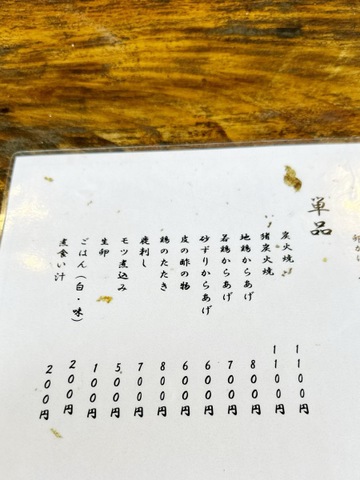 単品
炭火焼 1100円
猪炭火焼 1100円
地鶏からあげ 800円
若鶏からあげ 700円
砂ずりからあげ 600円
皮の酢の物 600円
鶏のたたき 800円
刺し 700円
モツ煮込み 500円
生卵 100円
ごはん(白・味) 200円
食い汁 200円